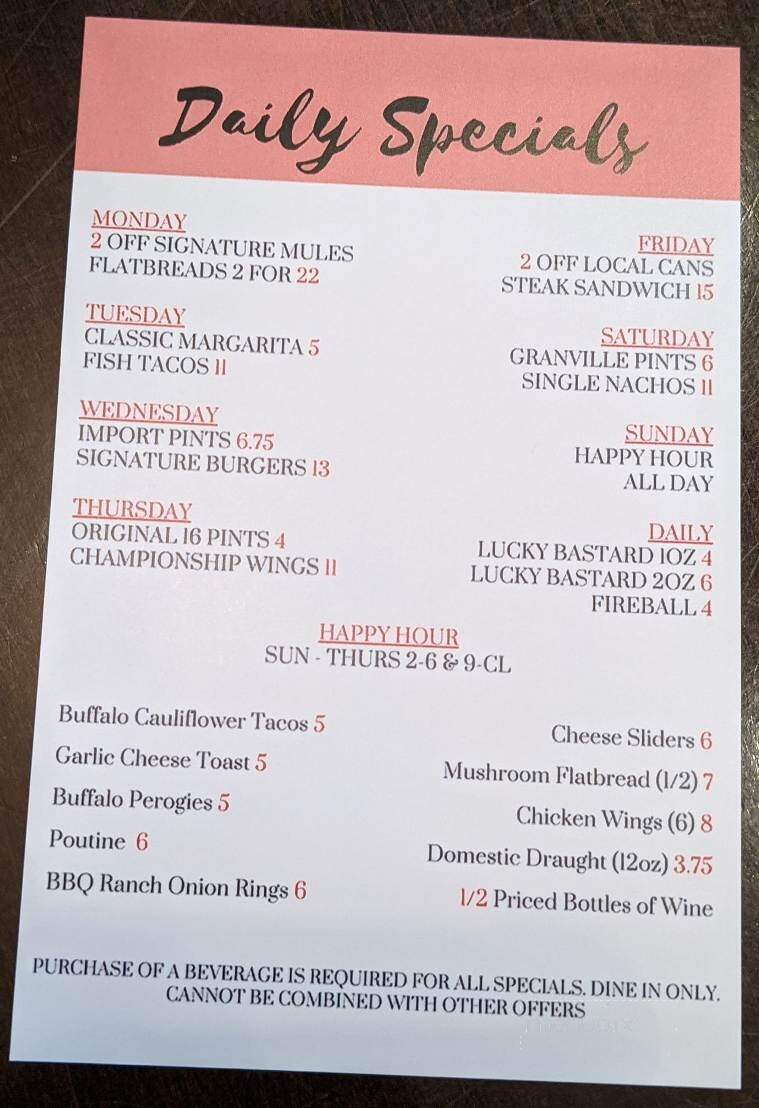 Daily Specials
MONDAY
2 OFF SIGNATURE MULES
FLATBREADS 2 FOR 22
TUESDAY
CLASSIC MARGARITA 5
FISH TACOS 11
WEDNESDAY
IMPORT PINTS 6.75
SIGNATURE BURGERS 13
THURSDAY
ORIGINAL 16 PINTS 4
CHAMPIONSHIP WINGS 11
FRIDAY
2 OFF LOCAL CANS
STEAK SANDWICH 15
SATURDAY
GRANVILLE PINTS 6
SINGLE NACHOS 11
SUNDAY
HAPPY HOUR
ALL DAY
DAILY
LUCKY BASTARD 1OZ 4
LUCKY BASTARD 2OZ 6
FIREBALL 4
HAPPY HOUR
SUN - THURS 2-6 & 9-CL
Buffalo Cauliflower Tacos 5
Garlic Cheese Toast 5
Buffalo Perogies 5
Poutine 6
BBQ Ranch Onion Rings 6
Cheese Sliders 6
Mushroom Flatbread (1/2) 7
Chicken Wings (6) 8
Domestic Draught (12oz) 3.75
1/2 Priced Bottles of Wine
PURCHASE OF A BEVERAGE IS REQUIRED FOR ALL SPECIALS. DINE IN ONLY.
CANNOT BE COMBINED WITH OTHER OFFERS